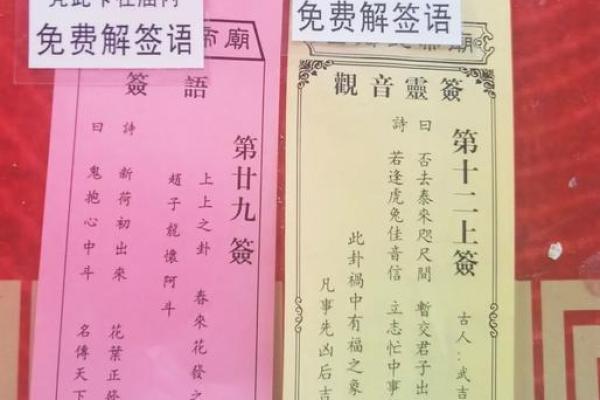 凭此卡在庙内
免费解签语
帝廟
簽語
第廿九簽
上上之卦 春來花發之
趙子龍懷阿斗
詩曰
新荷初出來 花葉正發
鬼抱心中斗 名傳天下
免费解签语
帝廟
觀音靈簽
第十二上簽
古人:武吉
詩曰
否去泰來咫尺間 暫交君子出
若逢虎兔佳音信 立志忙中事
此卦禍中有福之象
凡事先凶后吉